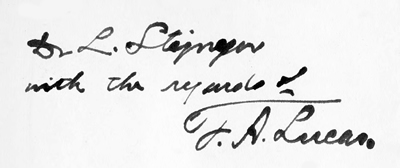 Dr L. Stejneger
with the regards of
F. A. Lucas.